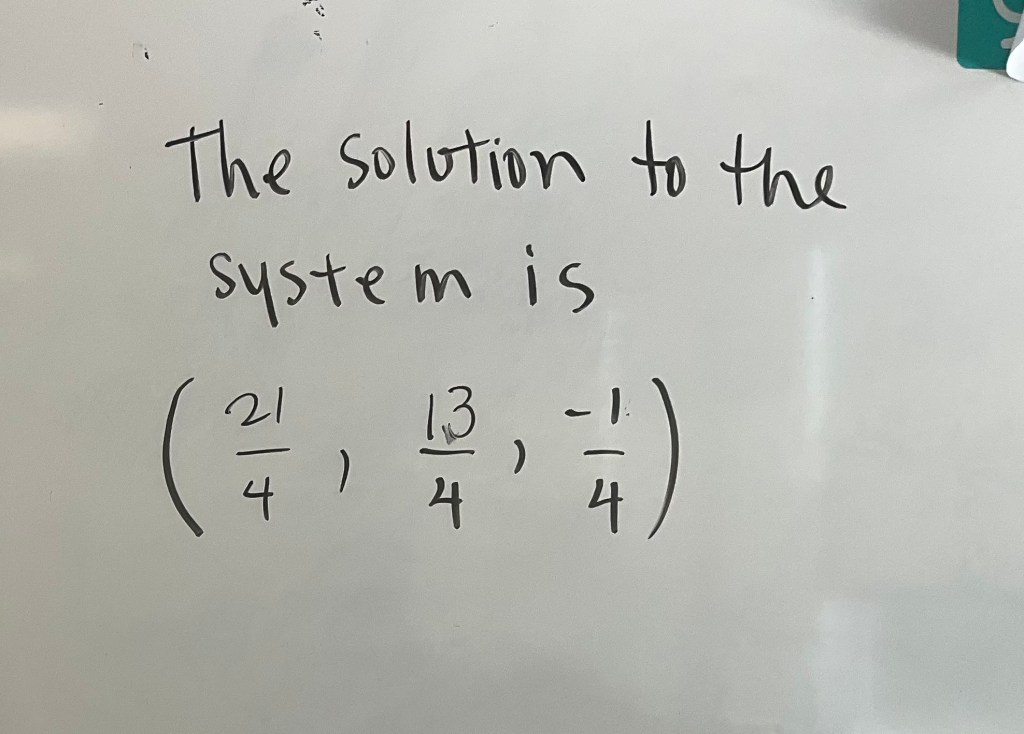 The solution to the
system is
(21/4, 13/4, -1/4)